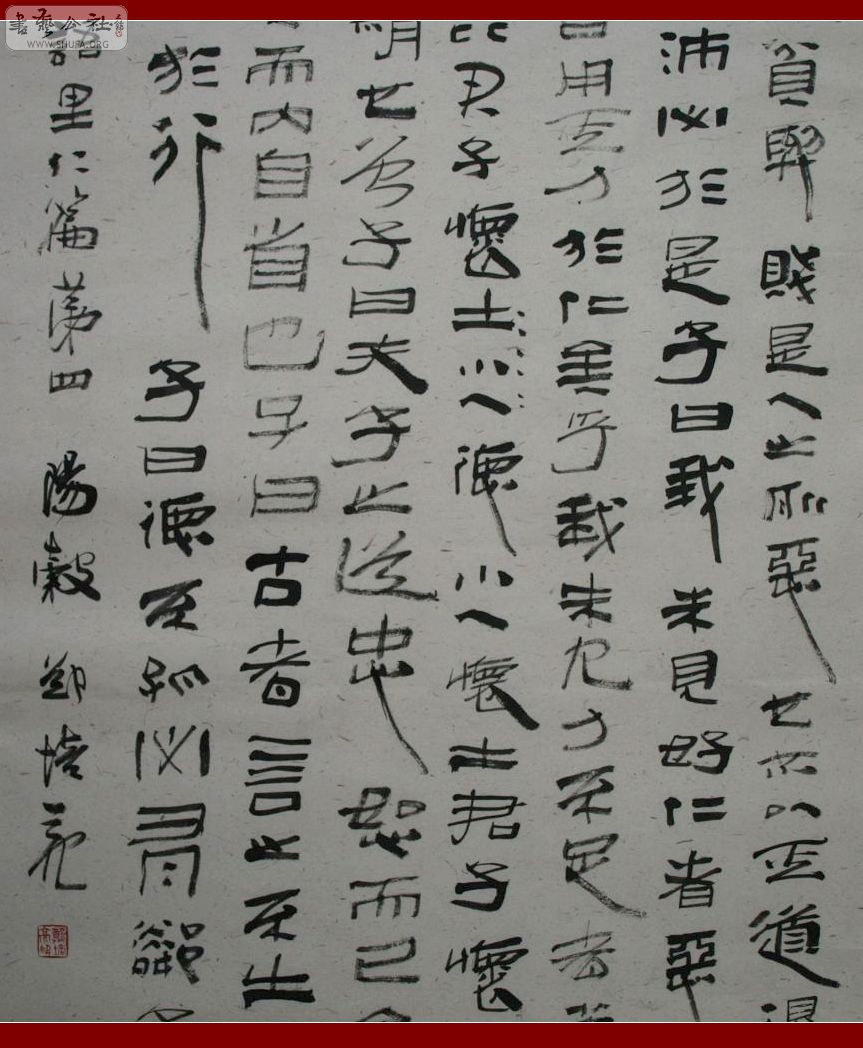 書藝公社
WWW.SHUFA.ORG
貧與賤是人之所惡也不以其道得
沛必於是子曰我未見好仁者惡
日用其力於仁矣乎我未見力不足者
比君子懷土小人德小人懷土君子懷
也曾子曰夫子之道忠恕而已
而內自省也子曰古者言之不出
於行子曰德不孤必有鄰
語里仁篇第四陽穀鄭培亮